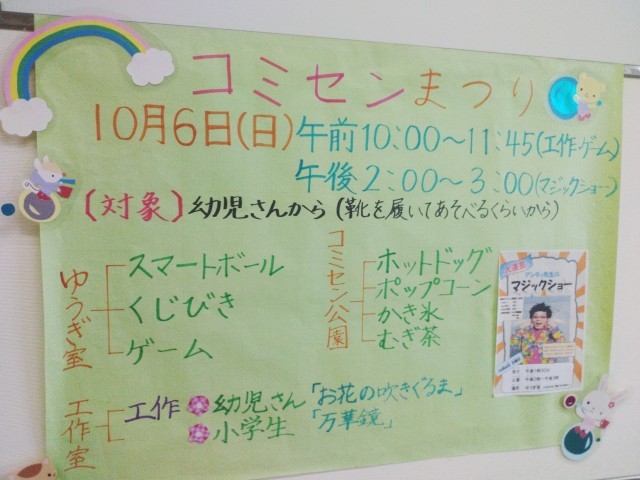 コミセンまつり
10月6日(日)午前10:00〜11:45(工作・ゲーム)
午後2:00〜3:00(マジックショー)
〔対象〕幼児さんから(靴を履いてあそべるくらいから)
ゆうぎ室
スマートボール
くじびき
ゲーム
コミセン公園
ホットドッグ
ポップコーン
かき氷
むぎ茶
工作室
工作
幼児さん「お花の吹きぐるま」
小学生「万華鏡」
マジックショー